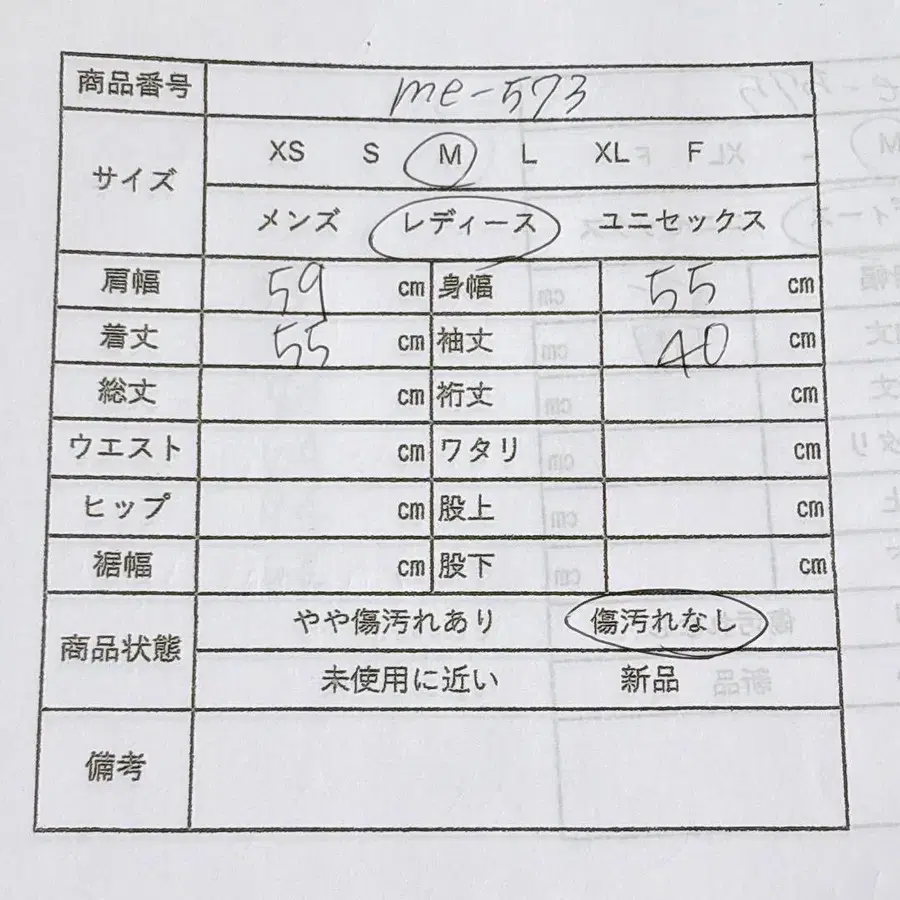 商品番号 me-573
サイズ XS S M L XL F
メンズ レディース ユニセックス
肩幅 59 cm 身幅 55 cm
着丈 55 cm 袖丈 40 cm
総丈 cm 裄丈 cm
ウエスト cm ワタリ cm
ヒップ cm 股上 cm
裾幅 cm 股下 cm
商品状態 やや傷汚れあり 傷汚れなし
未使用に近い 新品
備考